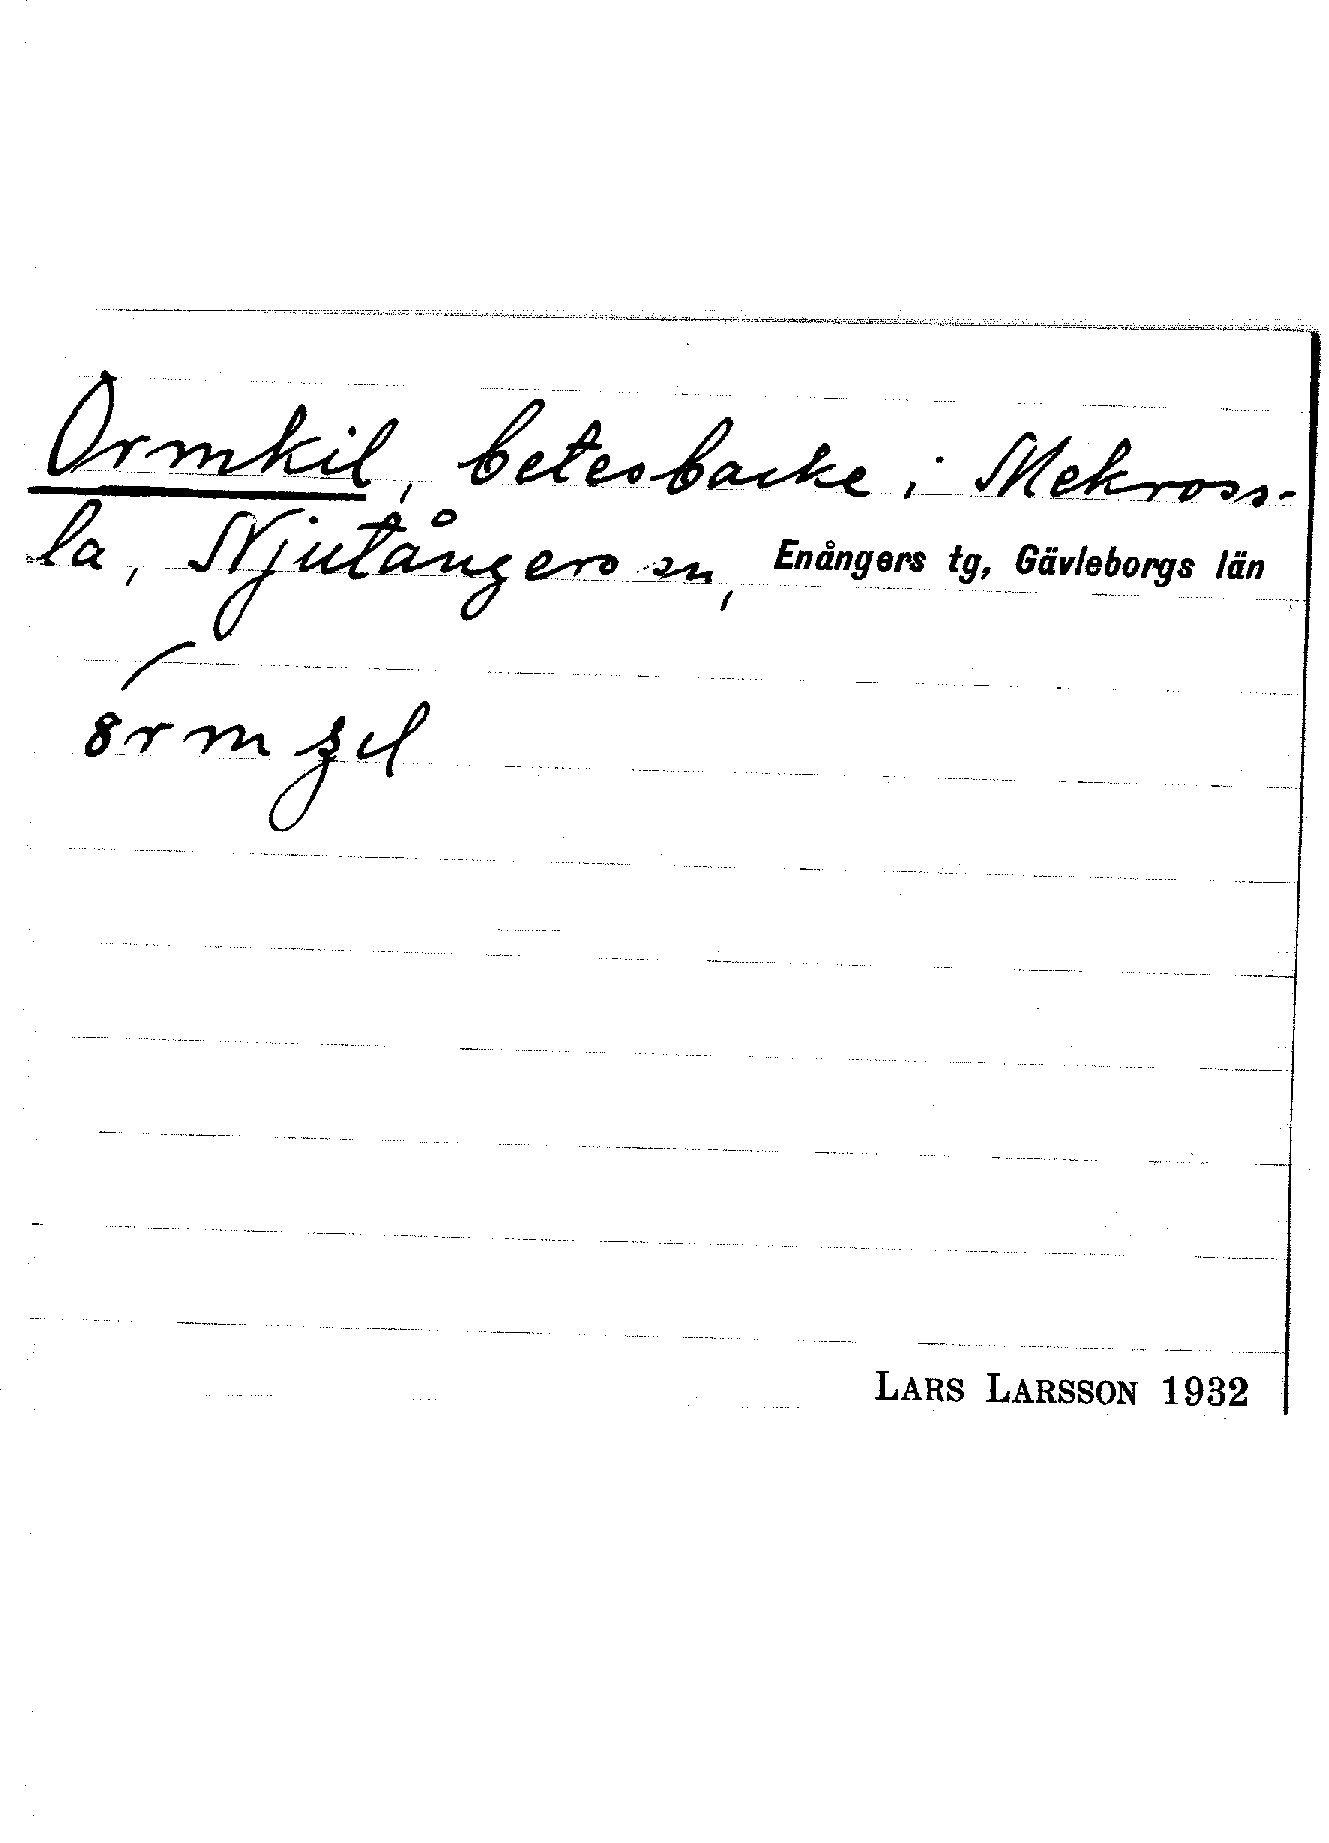 Ormkil, betesbacke i Mekross-
la, Njutångers sn, Enångers tg, Gävleborgs län
LARS LARSSON 1932